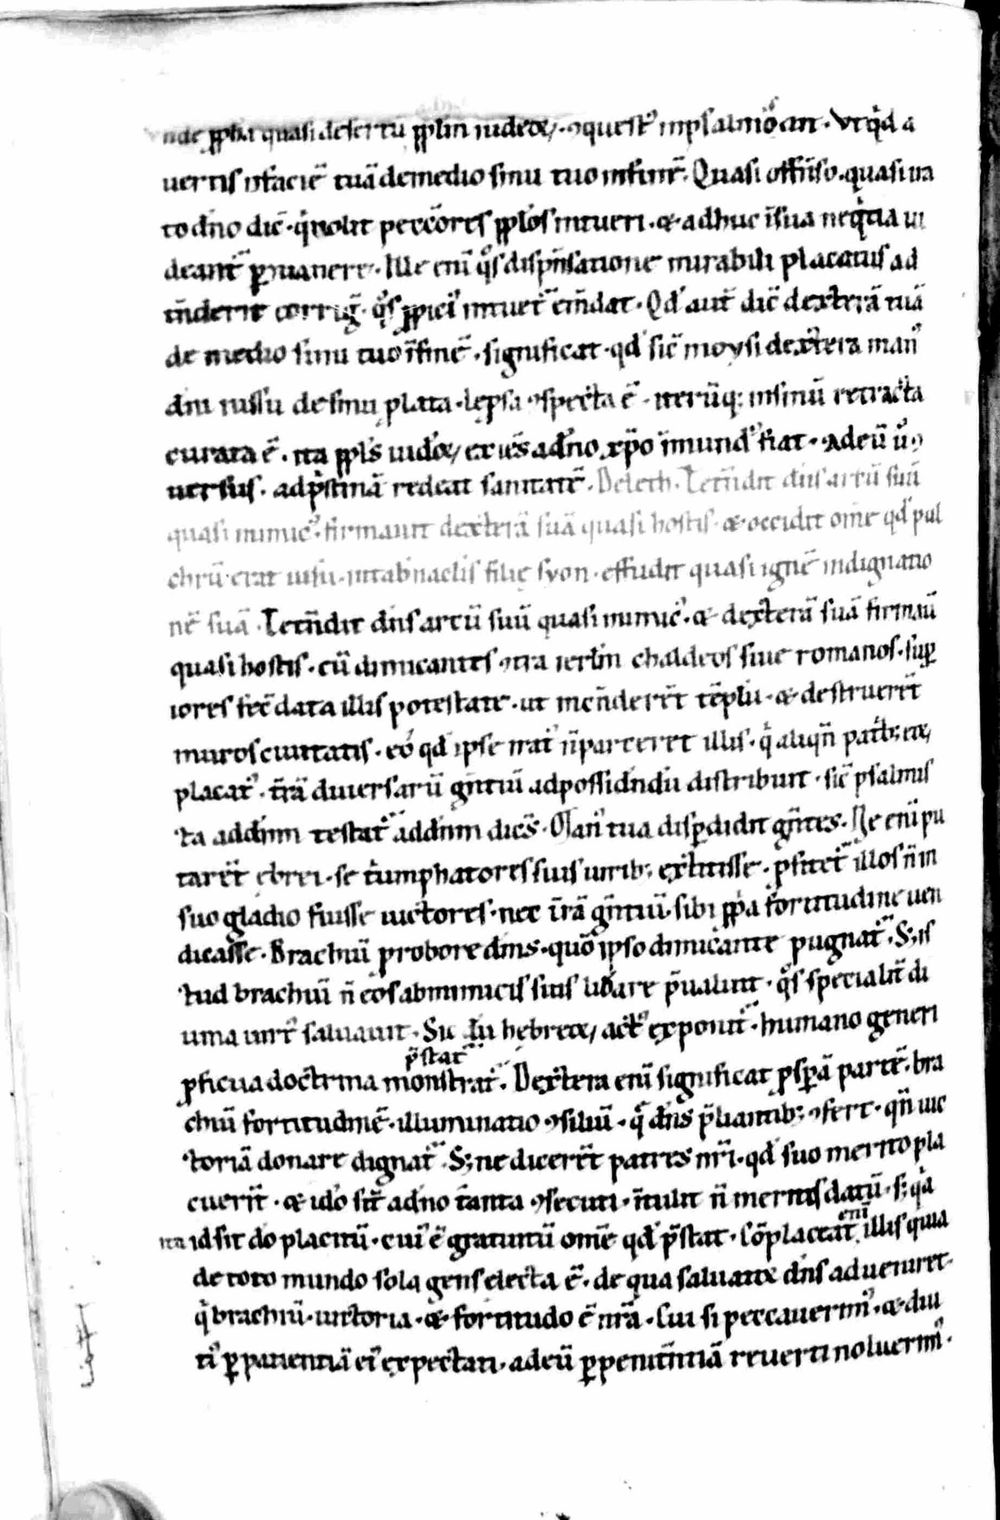 nde ꝓpha quasi desertū ppłm iudeoꝝ. ꝯquestꝰ in psalmo ait. Vt qͥd a
uertis n̄ faciē tuā de medio sinu tuo in finē. Quasi offēso. quasi ira
to dn̄o dic̄. qͥ nolit peccatores ppłos intueri. ⁊ adhuc ī sua neqͥtia ui
deant̄ ꝑmanere. Ille eni qͦs dispēsatione mirabili placatus ad
tēderit corriḡ. qͦs ꝓpiciꝰ intuet̄ emēdat. Qd̄ aut̄ dic̄ dexterā tuā
de medio sinu tuo ī finē. significat. qd̄ sic̄ moysi dextera manꝰ
dn̄i iussu de sinu ꝓlata. lep̄sa ꝯspecta ē. iterūq; in sinū retracta
curata ē. ita pplꝰs iudeoꝝ, ex uers̄ ad dn̄o xp̄o īmundꝰ fiat. ad eū ūo ꝯ
uersus. ad pͥstinā redeat sanitatē. Deleth. Tetēdit dn̄s arcū suū
quasi inimicꝰ. firmauit dexterā suā quasi hostis. ⁊ occidit om̄e qd̄ pul
chrū erat uisu. in tabnaclis filie syon. effudit quasi ignē indignatio
nē suā. Tetēdit dn̄s arcū suū quasi inimicꝰ. ⁊ dexterā suā firmauit
quasi hostis. cū dimicantes ꝯtra ierłm chaldeos siue romanos. suꝑ
iores fec̄ data illis potestate. ut incēderēt tēplū. ⁊ destruerēt
muros ciuitatis. eo qd̄ ipse iratꝰ n̄ parceret illis. qͥ aliqn̄ patribꝫ eoꝝ
placatꝰ. trā diuersarū gentiū ad possidēdū distribuit. sic̄ psalmis
ta ad dn̄m testat̄ ad dn̄m dicēs. Manꝰ tua disꝑdidit gētes. Ne enī pu
tarēt ebrei. se tͥumphatores suis uiribꝫ extitisse. ꝓfitet̄ illos n̄ in
suo gladio fuisse uictores. nec t̄rā gentiū. sibi ꝓpa fortitudine uen
dicasse. Brachiū pro robore dn̄s. quo ipso dimicante pugnat̄. S; is
tud brachiū n̄ eos ab inimicis suis libare p̄ualuit. qͦs specialit̄ di
uina uirtꝰ saluauit. Sic in hebreoꝝ, actꝰ exponit̄. humano generi
ꝓficua doctrina monstrat̄. p̄stat̄ Dextera enī significat ꝓspā partē. bra
chiū fortitudinē. illuminatio ꝯsiliū. qͥ dn̄s p̄liantibꝫ ꝯfert. qn̄ uic
toriā donare dignat̄. S; ne dicerēt patres nr̄i. qd̄ suo merito pla
cuerīt. ⁊ ideo sīt a dn̄o tanta ꝯsecuti. n̄tulit n̄ meritis datū. s; qͥa
ita id sit do placitū. cuiꝰ ē gratuitū om̄e qd̄ p̄stat. Cōplacuit enī illis quia
de toto mundo sola gens electa ē. de qua saluator dn̄s adueniret.
qͥ brachiū. uictoria. ⁊ fortitudo ē nr̄a. Cui si peccauerintꝰ. ⁊ diu
tiꝰ ꝑ patientiā eiꝰ expectati. ad eū ꝑ penitētiā reuerti noluerimꝰ.